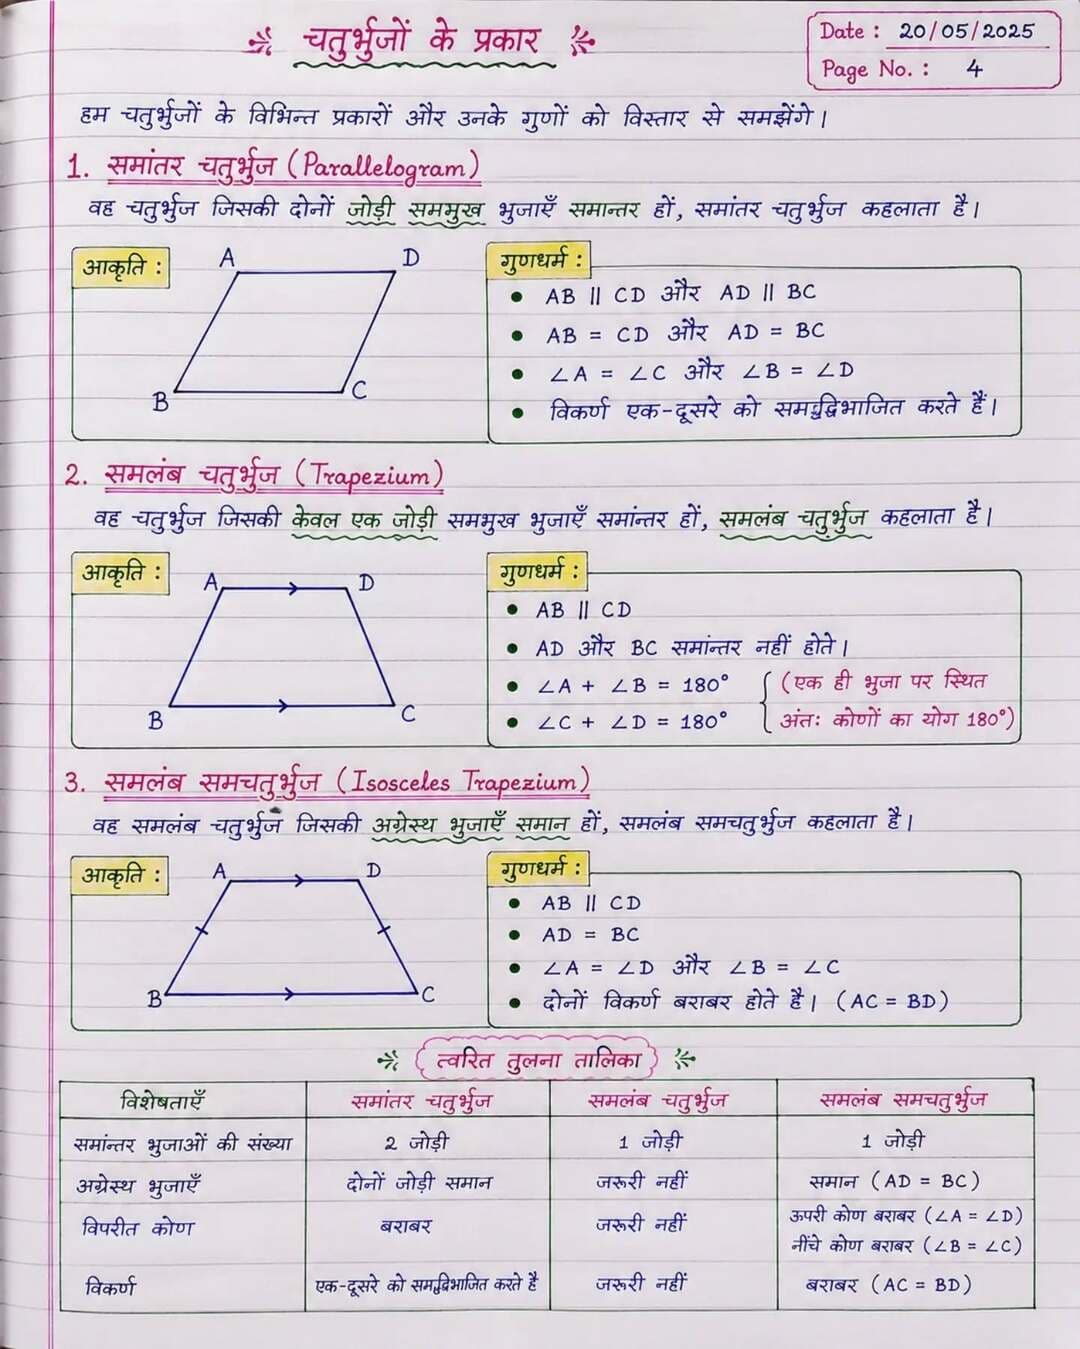 चतुर्भुजों के प्रकार
Date : 20/05/2025
Page No. : 4
हम चतुर्भुजों के विभिन्त प्रकारों और उनके गुणों को विस्तार से समझेंगे।
1. समांतर चतुर्भुज (Parallelogram)
वह चतुर्भुज जिसकी दोनों जोड़ी सममुख भुजाएँ समान्तर हों, समांतर चतुर्भुज कहलाता है।
आकृति :
A D
B C
गुणधर्म :
• AB || CD और AD || BC
• AB = CD और AD = BC
• ∠A = ∠C और ∠B = ∠D
• विकर्ण एक-दूसरे को समद्विभाजित करते हैं।
2. समलंब चतुर्भुज (Trapezium)
वह चतुर्भुज जिसकी केवल एक जोड़ी सममुख भुजाएँ समांन्तर हों, समलंब चतुर्भुज कहलाता है।
आकृति :
A D
B C
गुणधर्म :
• AB || CD
• AD और BC समांन्तर नहीं होते।
• ∠A + ∠B = 180° { (एक ही भुजा पर स्थित
• ∠C + ∠D = 180° अंतः कोणों का योग 180°)
3. समलंब समचतुर्भुज (Isosceles Trapezium)
वह समलंब चतुर्भुज जिसकी अग्रेस्थ भुजाएँ समान हों, समलंब समचतुर्भुज कहलाता है।
आकृति :
A D
B C
गुणधर्म :
• AB || CD
• AD = BC
• ∠A = ∠D और ∠B = ∠C
• दोनों विकर्ण बराबर होते है। (AC = BD)
त्वरित तुलना तालिका
विशेषताएँ समांतर चतुर्भुज समलंब चतुर्भुज समलंब समचतुर्भुज
समांन्तर भुजाओं की संख्या 2 जोड़ी 1 जोड़ी 1 जोड़ी
अग्रेस्थ भुजाएँ दोनों जोड़ी समान जरूरी नहीं समान (AD = BC)
विपरीत कोण बराबर जरूरी नहीं ऊपरी कोण बराबर (∠A = ∠D)
नींचे कोण बराबर (∠B = ∠C)
विकर्ण एक-दूसरे को समद्विभाजित करते है जरूरी नहीं बराबर (AC = BD)